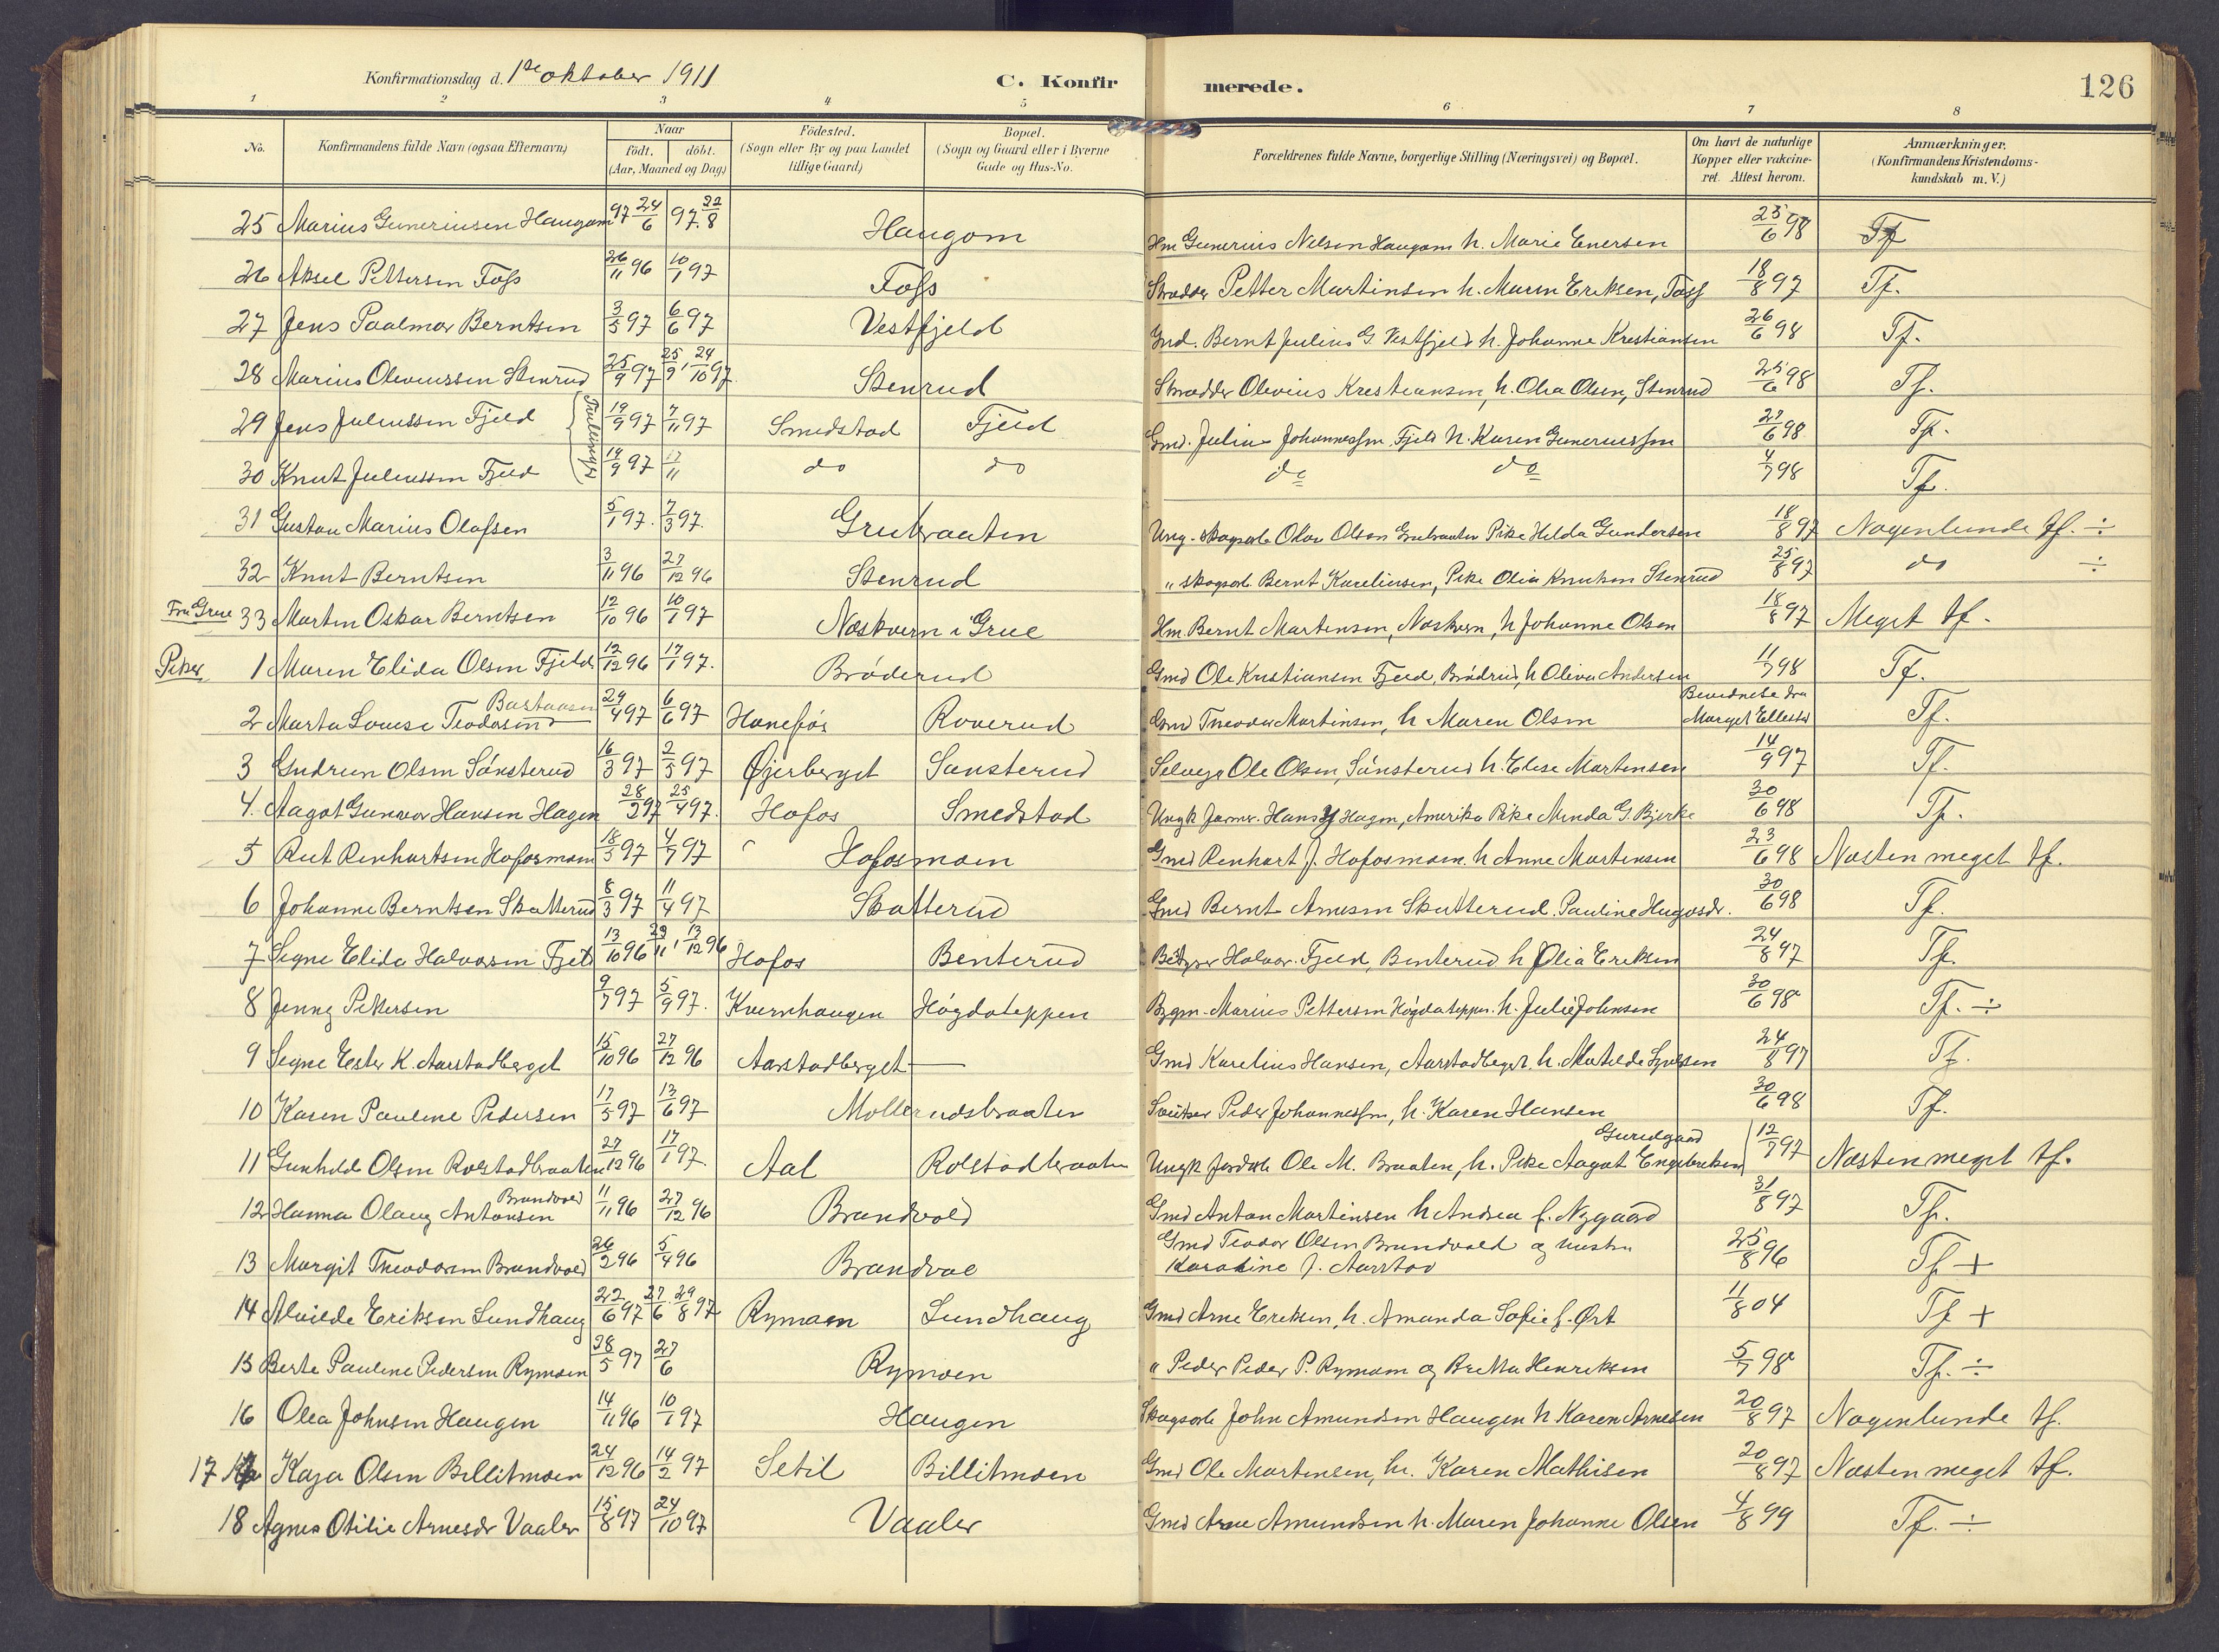 Konfirmationsdag d. 1ste oktober 1911 C. Konfirmerede. 126
1 2 3 4 5 6 7 8
No. Konfirmandens fulde Navn (ogsaa Efternavn) Naar födt. döbt. (Aar, Maaned og Dag) Födested. (Sogn eller By og paa Landet tillige Gaard) Bopæl. (Sogn og Gaard eller i Byerne Gade og Hus-No. Forældrenes fulde Navne, borgerlige Stilling (Næringsvei) og Bopæl. Om havt de naturlige Kopper eller vakcineret. Attest herom. Anmærkninger. (Konfirmandens Kristendomskundskab m. V.)
25 Marius Guneriusen Haugom 97 24/6 97 22/8 Haugom Hm Gunerius Nelsen Haugom h. Marie Enersen 23/6 98 Tf
26 Aksel Pettersen Foss 26/11 96 10/1 97 Foss Skrædder Petter Martinsen h. Maren Eriksen, Foss 18/8 97 Tf.
27 Jens Paalmar Berntsen 3/5 97 6/6 97 Vestfjeld Gmd. Bernt Julius G. Vestfjeld h. Johanne Kristiansen 26/6 98 Tf.
28 Marius Oleviussen Stenrud 25/9 97 25/9, 24/10 97 Stenrud Skrædder Olevius Kristiansen, h. Olia Olsen, Stenrud 25/6 98 Tf.
29 Jens Juliussen Fjeld Tvillinger 19/9 97 7/11 97 Smedstad Fjeld Gmd. Julius Johannessen Fjeld h. Karen Guneriussen 27/6 98 Tf.
30 Knut Juliussen Fjeld 19/9 97 17/11 do do do do 4/7 98 Tf.
31 Gustav Marius Olafsen 5/1 97. 7/3 97. Grubraaten Ung. skogsarb Olav Olsen Grubraaten Pike Helda Gundersen 18/8 97 Nogenlunde tf. ÷
32 Knut Berntsen 3/11 96 27/12 96 Stenrud " skogsarb. Bernt Kareliusen, Pike Olia Knutsen Stenrud 25/8 97 do ÷
Fra Grue 33 Martin Oskar Berntsen 12/10 96 10/1 97 Næskvern i Grue Hm. Bernt Martinsen, Næskvern, h Johanne Olsen 18/8 97 Meget tf.
Piker 1 Maren Elida Olsen Fjeld 12/12 96 17/1 97. Bröderud Gmd Ole Kristiansen Fjeld, Brödrud, h Oliva Andersen 11/7 98 Tf.
2 Marta Louise Teodorsen Bastaasen 29/4 97 6/6 97 Hanefos Roverud Gmd Theodor Martinsen, h Maren Olsen Bevidnelse fra Margit Ellestad Tf.
3 Gudrun Olsen Sönsterud 16/3 97 2/5 97 Øierberget Sønsterud Selveier Ole Olsen, Sönsterud h. Elise Martensen 14/9 97 Tf.
4. Aagot Gunvor Hansen Hagen 28/2 97 25/4 97. Hofos Smedstad Ungk farmer. Hans Hagen, Amerika Pike Minda G. Bjerke 30/6 98 Tf.
5 Rut Renhartsen Hofosmoen 18/5 97 4/7 97 Hofosmoen Gmd Renhart J. Hofosmoen. h Anne Martensen 23/6 98 Næsten meget tf.
6 Johanne Berntsen Skatterud 8/3 97 11/4 97 Skatterud Gmd Bernt Arnesen Skatterud. Pauline Hugosdr. 30/6 98 Tf.
7 Signe Elida Halvorsen Fjeld 13/10 96 29/11, 13/12 96 Hofos Benterud Halvor Fjeld, Benterud h Olia Eriksen 24/8 97 Tf.
8 Jenny Pettersen 9/7 97 5/9 97. Kvernhaugen Högdateppen Bygm. Marius Pettersen Högdateppen. h. Julie Johnsen 30/6 98 Tf. ÷
9 Signe Ester K. Aarstadberget 15/10 96 27/12 96 Aarstadberget — Gmd Karelius Hansen, Aarstadberget. h. Matilde Syversen 24/8 97 Tf.
10 Karen Pauline Pedersen 17/5 97 13/6 97 Mollerudsbraaten Sveitser Peder Johannessen, h. Karen Hansen 30/6 98 Tf.
11 Gunhild Olsen Rolstadbraaten 27/12 96 17/1 97. Aal Rolstadbraaten Ungk jordarb Ole M. Braaten, h. Pike Aagot Engebretsen Guridgaard 12/7 97 Næsten meget tf.
12 Hanna Olaug Antonsen Brandvold 11/11 96 27/12 96 Brandvold Gmd Anton Martinsen h Andrea f. Nygaard 31/8 97 Tf.
13 Margit Theodorsen Brandvold 26/2 96 5/4 96 Brandvol Gmd Teodor Olsen Brandvold og hustru Karoline J. Aarstad 25/8 96 Tf +
14 Alvilde Eriksen Lundhaug 22/6 97 27/6. 29/8 97 Rymoen Lundhaug Gmd Arne Eriksen, h. Amanda Sofie f. Ørt 11/8 04 Tf +
15 Berte Pauline Pedersen Rymoen 28/5 97 27/6 Rymoen " Peder Peder P. Rymoen og Britta Henriksen 5/7 98 Tf. ÷
16 Olea Johnsen Haugen 14/11 96 10/1 97 Haugen Skogsarb John Amundsen Haugen h Karen Arnesen 20/8 97 Nogenlunde tf.
17 Kaja Olsen Billitmoen 24/12 96 14/2 97 Setil Billitmoen Gmd Ole Martensen, h. Karen Mathisen 20/8 97 Næsten meget tf.
18 Agnes Otilie Arnesdr Vaaler 15/8 97 24/10 97 Vaaler Gmd Arne Amundsen h. Maren Johanne Olsen 4/8 99 Tf. ÷